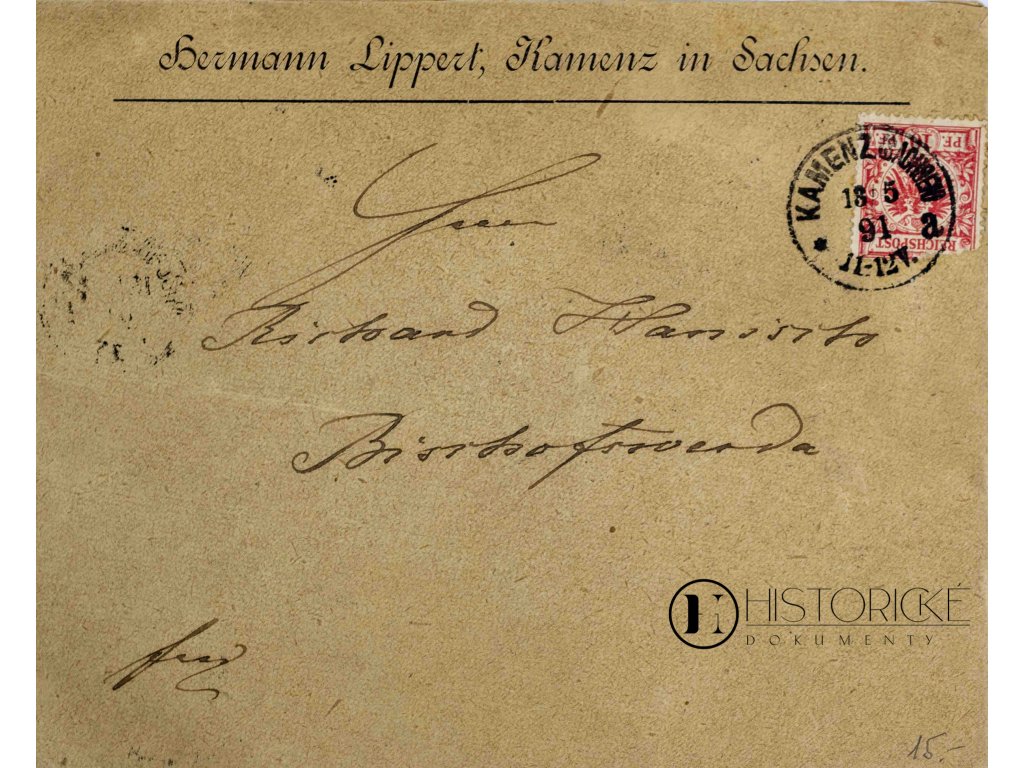 Hermann Lippert, Kamenz in Sachsen.
PF. 10 PF.
REICHSPOST
KAMENZ SACHSEN
18 5
91 a
* 11-12V.
Herrn
Richard Hanisch
Bischofswerda
HISTORICKÉ
DOKUMENTY
15.-